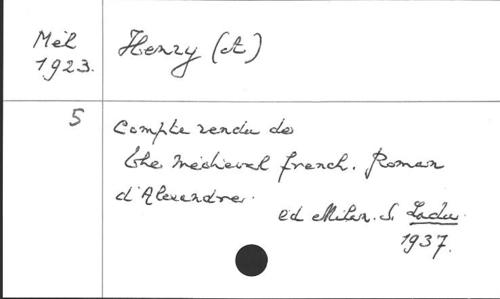 Mél
1923.
Henry (A)
5
Compte rendu de
the medieval french. Roman
d'Alexandre.
ed Milan. S. Ladu
1937.